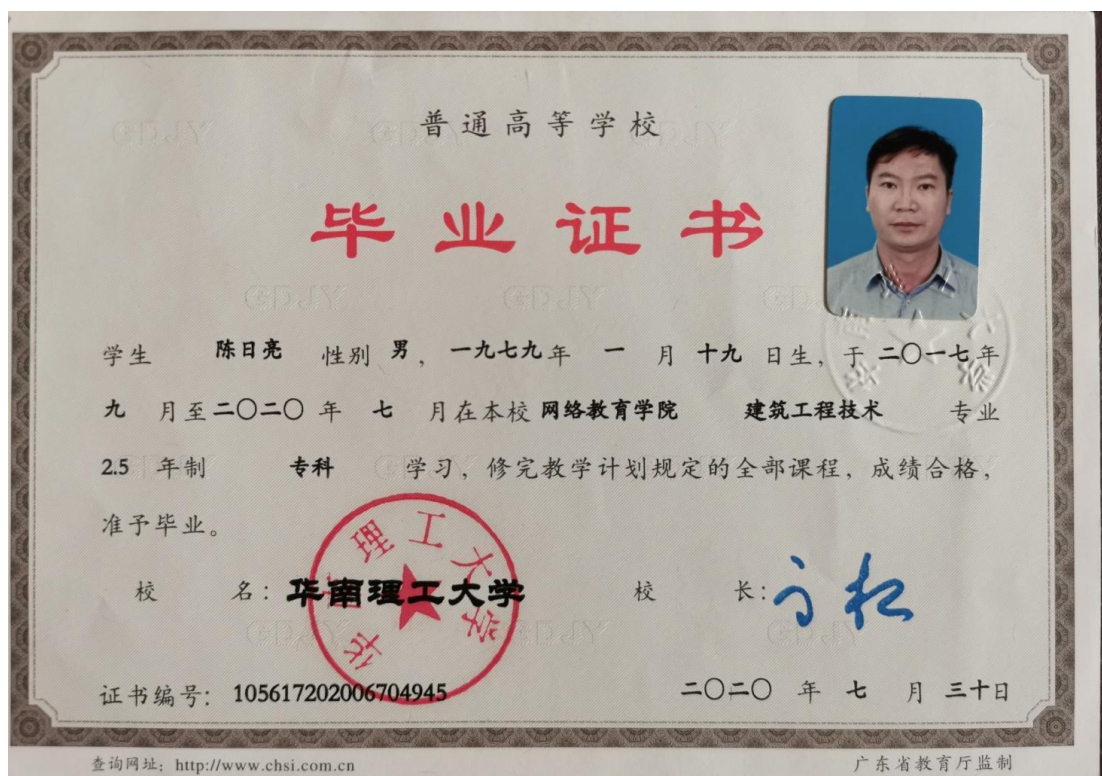 普通高等学校
毕业证书
学生 陈日亮 性别 男，一九七九年 一 月 十九 日生，于 二〇一七年
九 月至二〇二〇 年 七 月在本校 网络教育学院 建筑工程技术 专业
2.5 年制 专科 学习，修完教学计划规定的全部课程，成绩合格，
准予毕业。
校 名：华南理工大学 校 长：
华南理工大学
证书编号：105617202006704945 二〇二〇 年 七 月 三十日
查询网址：http://www.chsi.com.cn 广东省教育厅监制
GDJY GDJY GDJY